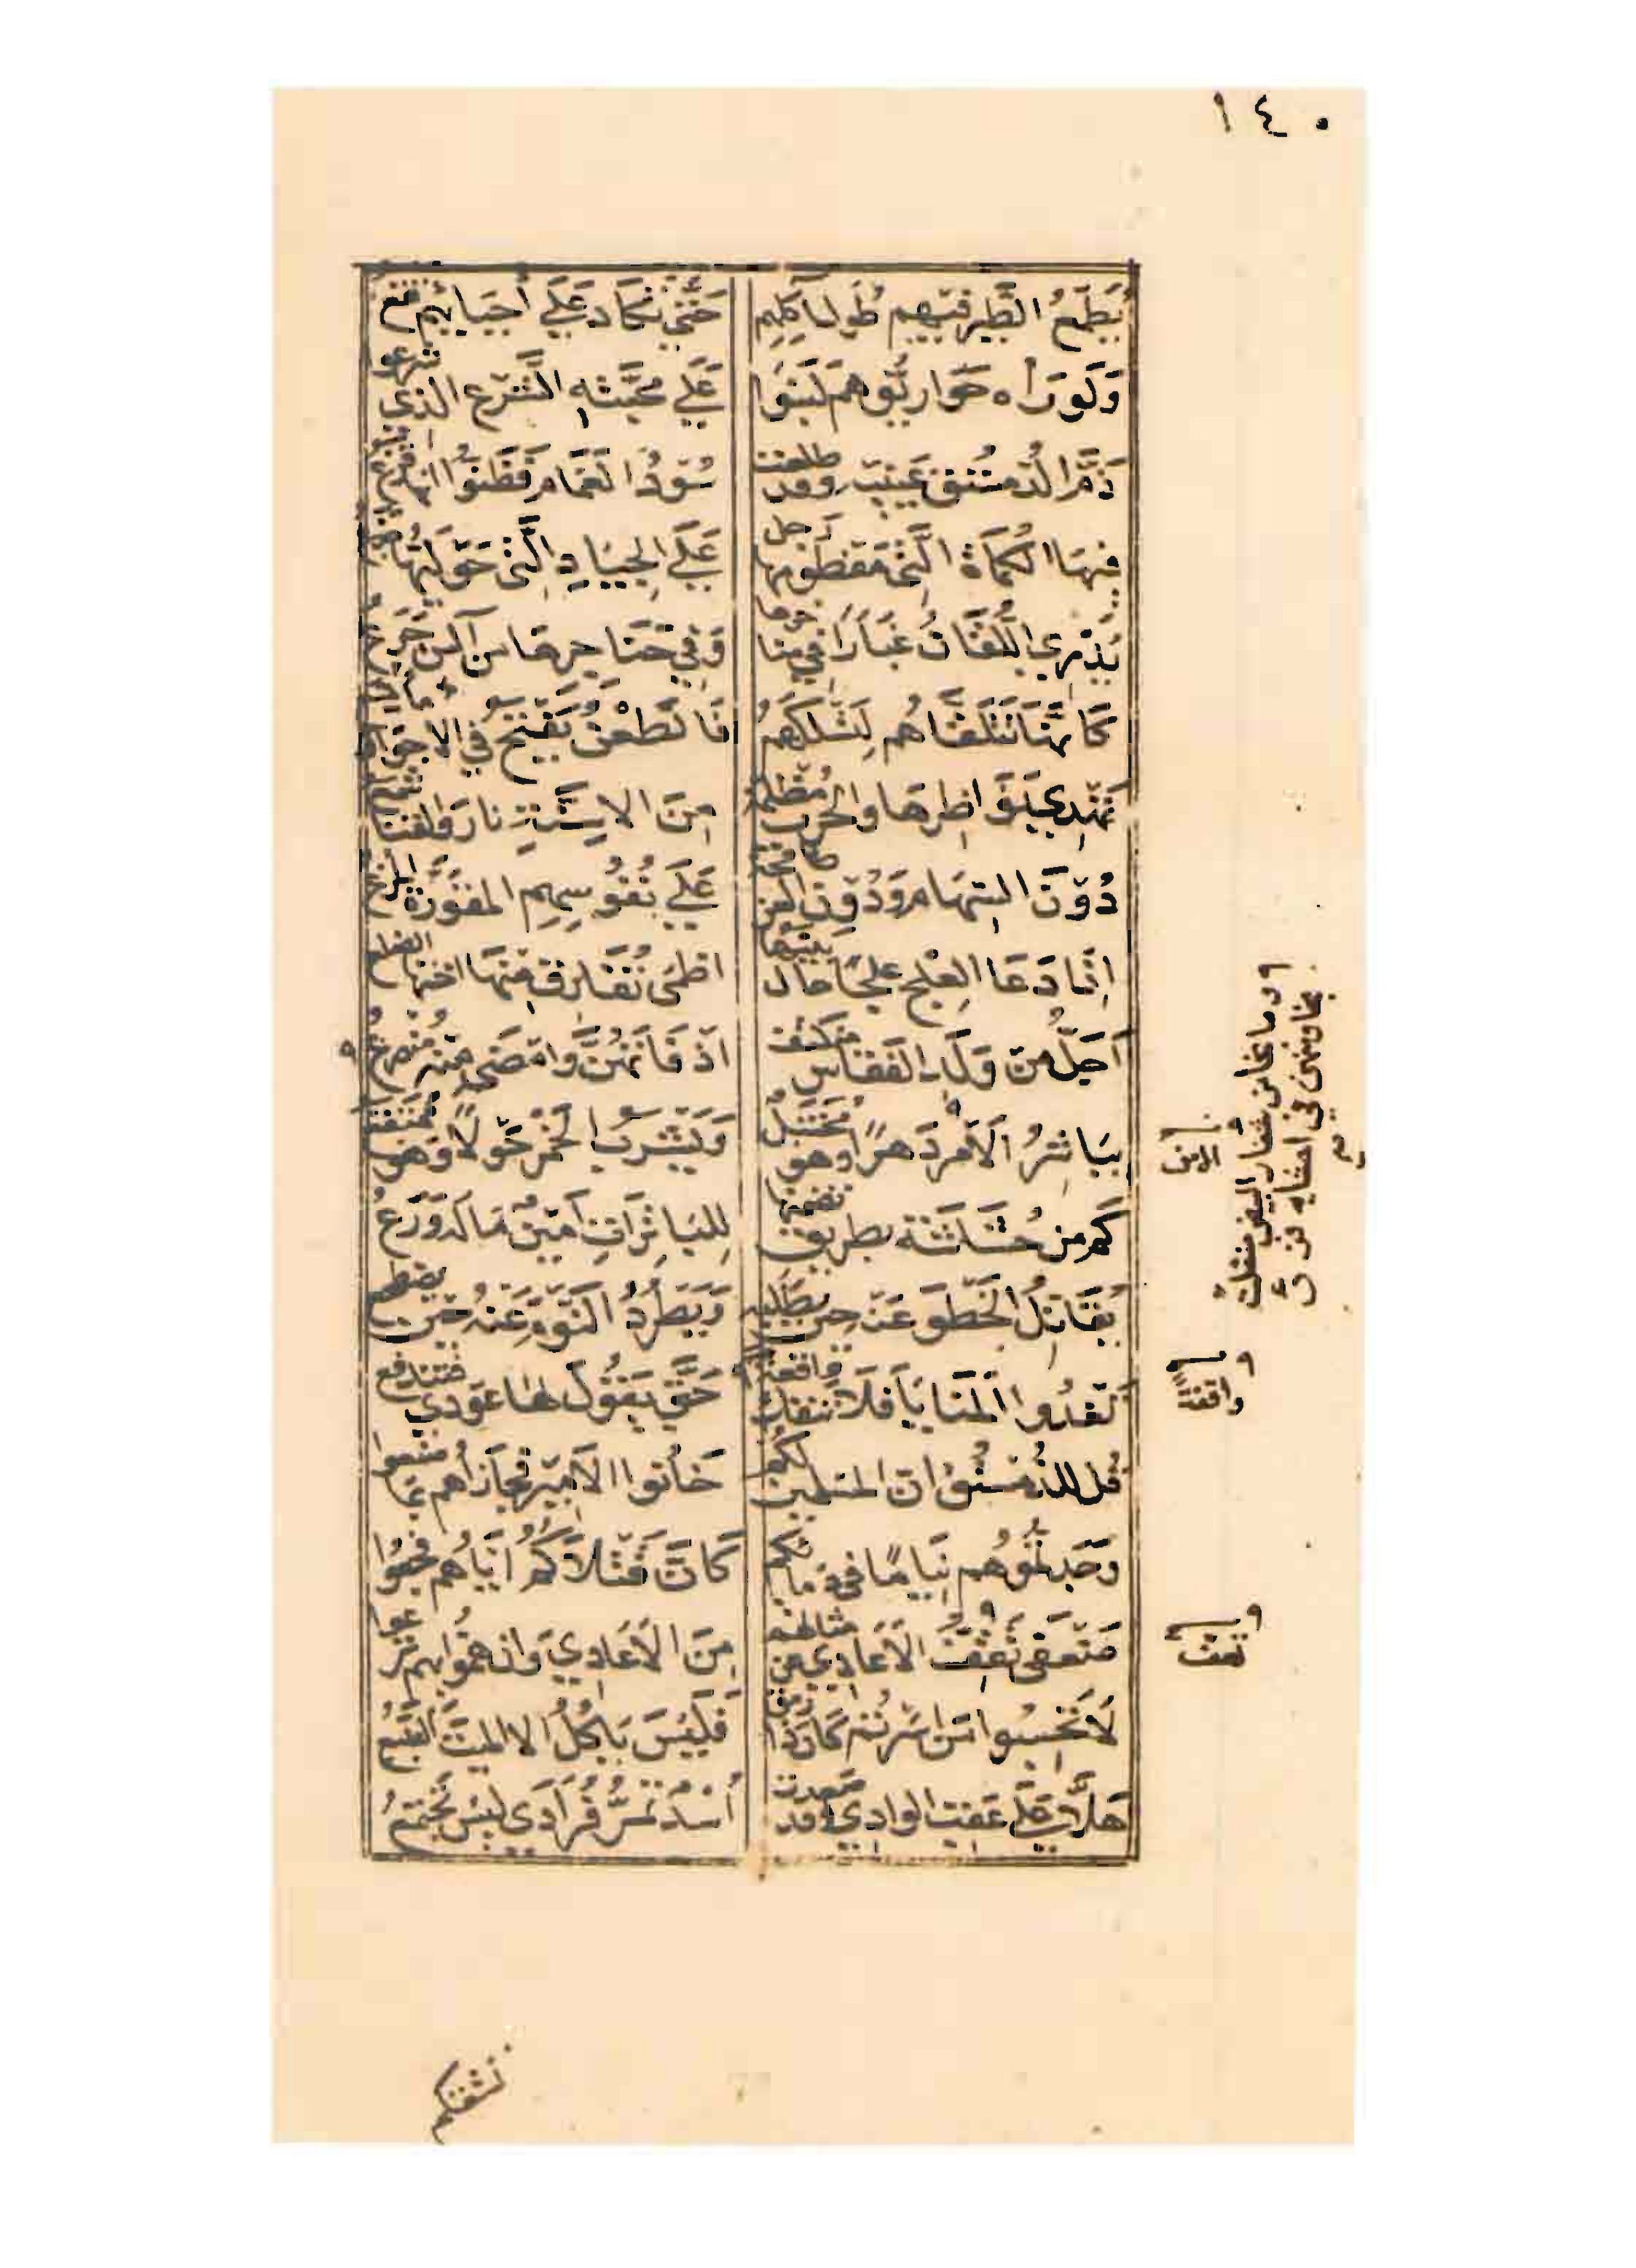 ١٤٠
يُطَمِّعُ الطَّيرَ فيهِم طُولُ أكلِهِم حَتّى تَكاد عَلَى أحيائهِم تقع
وَلَو رَآه حَواريّوهم لَبَنَوا عَلَى محبَّتِه الشَّرع الذي شرعوا
ذَمَّ الدُّمستق عَينيه وقد طلعت سُودُ الغَمام فَظَنُّوا انها قزع
فيهَا الكُماة التي مفطومها رجل عَلَى الجيَادِ الَّتي حَوليّها جذع
يُذري اللُّقَان غُبَارًا في مناخرها وَفي حَنَاجرها من آلس جرع
كَأنَّما تَتَلقّاهُم لِتَسلُكَهُم فَالطَّعْنُ يَفتح في الاجواف ما تسع
تَهدي نَوَاظِرَها والحرب مُظلمة مِنَ الاسِنَّةِ نار والقنا شمع
دُونَ السّهَام وَدُون القر طافحة عَلَى نُفُوسِهِم المقوَرّة المزع
اذا دَعَا العِلج علجًا حال بينهما اظمَى تُفَارق منهَا اختها الضلع
اَجَلُّ من وَلَد الفقاس منكتف اذ فَاتَهُنَّ وامضَى منه مُنصرع
يبَاشرُ الاَمر دَهرًا وهو مُختبل وَيَشرَبُ الخمر حَولاً وَهو ممتقع
كم من حُشَاشَة بطريق تضمنها لِلبَاتِرَاتِ امينٌ مَا لَه وَرَعُ
يُقَاتلُ الخَطو عَنه حين يطلبه وَيَطرُدُ النّوم عَنهُ حين يضطجع
تَغدُوا المَنايا فَلا تنفك واقفة حَتّى يَقُول لها عودي فتندفع
قُل للدُّمستق ان المسلمين لكم خَانُوا الاَمير فجازاهم بما صنعوا
وَجَدتموهُم نِيامًا في دمائكم كَأنَّ قَتلاكُم ايّاهُم فجعوا
ضَعفَى تَعِفّ الاَعَادي عن مثالهم مِنَ الاَعَادي وَان همّوا بهم نزعوا
لاَ تَحسبوا مَن اسَرتم كان ذا رمق فَليسَ يَاكُلُ الا الميت الضبع
هَلاَّ عَلَى عَقِب الوادي وقد صعدت أسْدٌ تمُرُّ فُرَادَى ليس تجتمع
وما نجا من شفار البيض منفلت
نجا ومنهن في احشايه فزع
الامن
واقفة
تعف
تشقكم